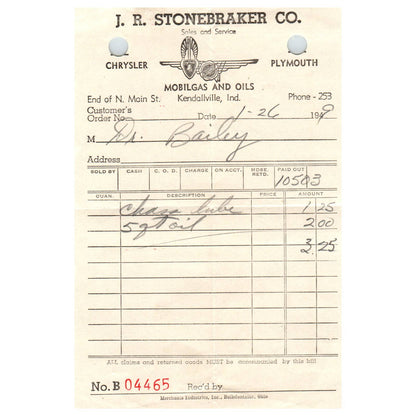 J. R. STONEBRAKER CO.
Sales and Service
CHRYSLER PLYMOUTH
MOBILGAS AND OILS
End of N. Main St. Kendallville, Ind. Phone - 253
Customer's
Order No. Date 1-26 1949
M Dr. Bailey
Address
SOLD BY CASH C. O. D. CHARGE ON ACCT. MDSE. RETD. PAID OUT
10503
QUAN. DESCRIPTION PRICE AMOUNT
Chass lube 1.25
5 qt oil 2.00
3.25
ALL claims and returned goods MUST be accompanied by this bill
No. B 04465 Rec'd by
Merchants Industries, Inc., Bellefontaine, Ohio